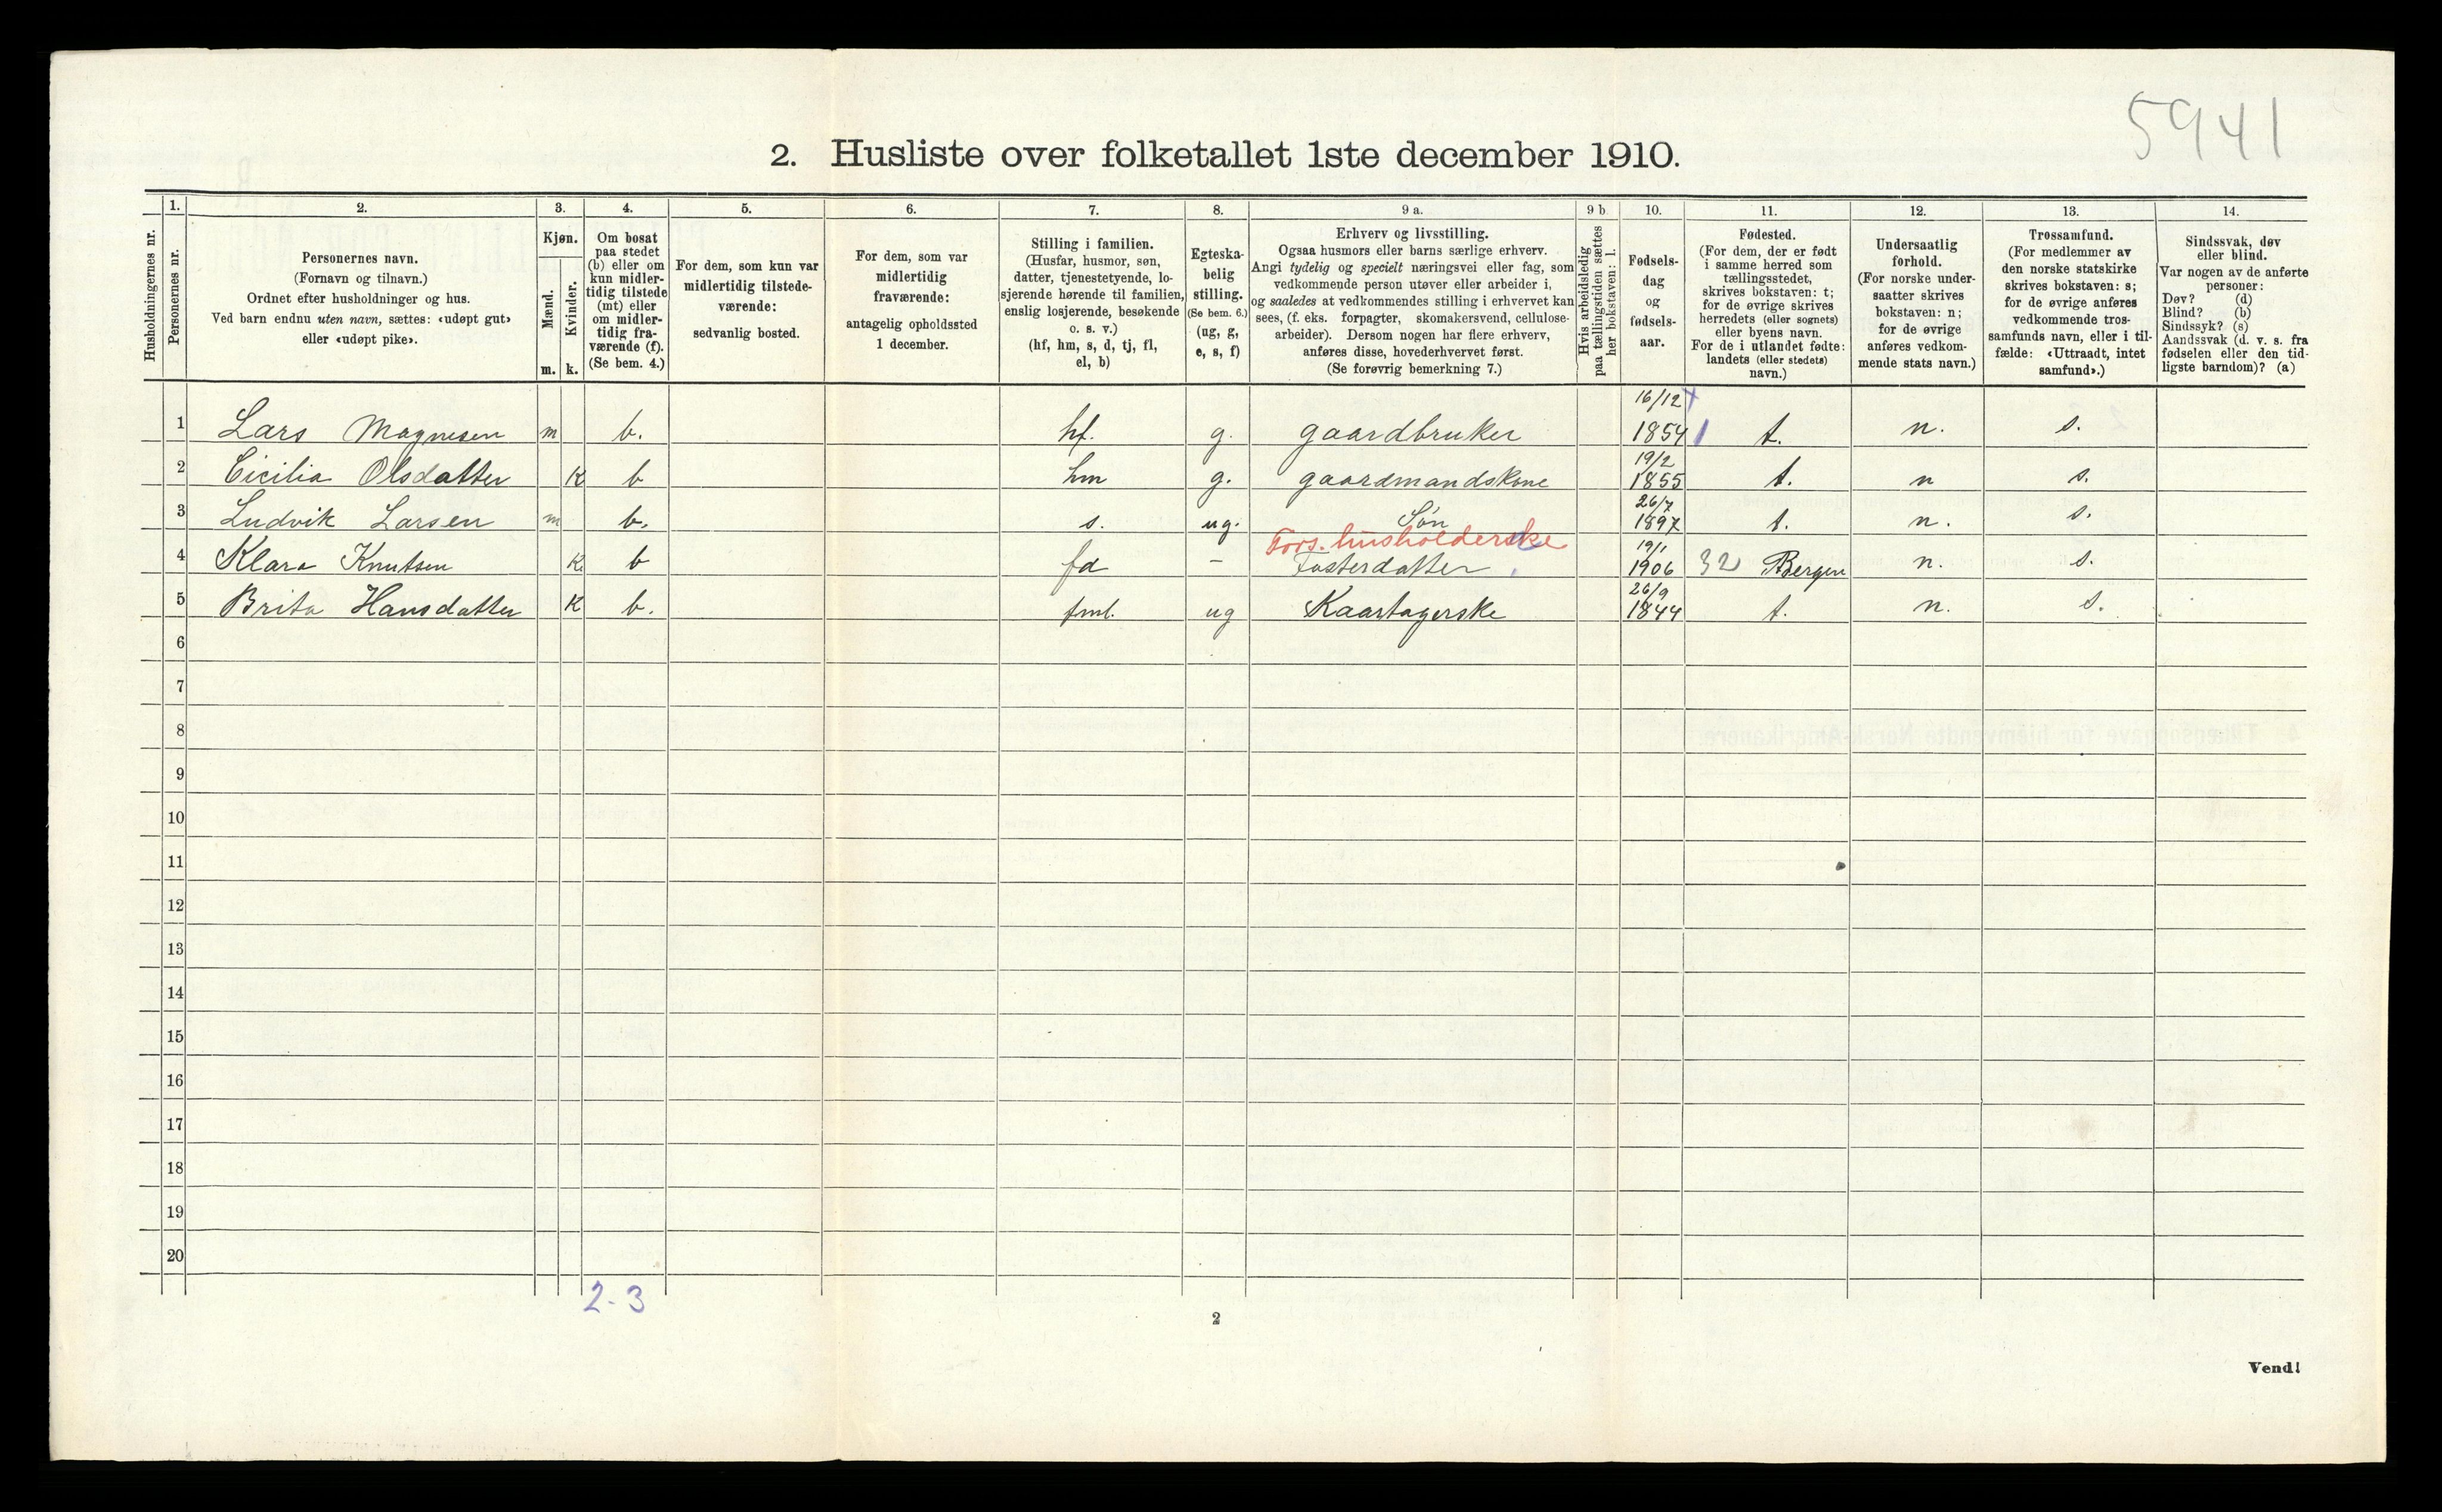 5941
2. Husliste over folketallet 1ste december 1910.
Husholdningernes nr.
1.
Personernes nr.
2.
Personernes navn.
(Fornavn og tilnavn.)
Ordnet efter husholdninger og hus.
Ved barn endnu uten navn, sættes: «udøpt gut»
eller «udøpt pike».
3.
Kjøn.
Mænd.
Kvinder.
m. k.
4.
Om bosat
paa stedet
(b) eller om
kun midler-
tidig tilstede
(mt) eller
om midler-
tidig fra-
værende (f).
(Se bem. 4.)
5.
For dem, som kun var
midlertidig tilstede-
værende:
sedvanlig bosted.
6.
For dem, som var
midlertidig
fraværende:
antagelig opholdssted
1 december.
7.
Stilling i familien.
(Husfar, husmor, søn,
datter, tjenestetyende, lo-
sjerende hørende til familien,
enslig losjerende, besøkende
o. s. v.)
(hf, hm, s, d, tj, fl,
el, b)
8.
Egteska-
belig
stilling.
(Se bem. 6.)
(ug, g,
e, s, f)
9 a.
Erhverv og livsstilling.
Ogsaa husmors eller barns særlige erhverv.
Angi tydelig og specielt næringsvei eller fag, som
vedkommende person utøver eller arbeider i,
og saaledes at vedkommendes stilling i erhvervet kan
sees, (f. eks. forpagter, skomakersvend, cellulose-
arbeider). Dersom nogen har flere erhverv,
anføres disse, hovederhvervet først.
(Se forøvrig bemerkning 7.)
9 b
Hvis arbeidsledig
paa tællingstiden sættes
her bokstaven: l.
10.
Fødsels-
dag
og
fødsels-
aar.
11.
Fødested.
(For dem, der er født
i samme herred som
tællingsstedet,
skrives bokstaven: t;
for de øvrige skrives
herredets (eller sognets)
eller byens navn.
For de i utlandet fødte:
landets (eller stedets)
navn.)
12.
Undersaatlig
forhold.
(For norske under-
saatter skrives
bokstaven: n;
for de øvrige
anføres vedkom-
mende stats navn.)
13.
Trossamfund.
(For medlemmer av
den norske statskirke
skrives bokstaven: s;
for de øvrige anføres
vedkommende tros-
samfunds navn, eller i til-
fælde: «Uttraadt, intet
samfund».)
14.
Sindssvak, døv
eller blind.
Var nogen av de anførte
personer:
Døv? (d)
Blind? (b)
Sindssyk? (s)
Aandssvak (d. v. s. fra
fødselen eller den tid-
ligste barndom)? (a)
1 Lars Magnesen m b. hf. g. gaardbruker 16/12 1854 t. n. s.
2 Cicilia Olsdatter K b hm g. gaardmandskone 19/2 1855 t. n s.
3 Ludvik Larsen m b. s. ug. Søn 26/7 1897 t. n. s.
Fors. husholderske
4 Klara Knutsen K. b fd – Fosterdatter 19/1 1906 32 Bergen n. s.
5 Brita Hansdatter K b. fml. ug Kaartagerske 26/9 1844 t. n. s.
6
7
8
9
10
11
12
13
14
15
16
17
18
19
20
2-3
2
Vend!